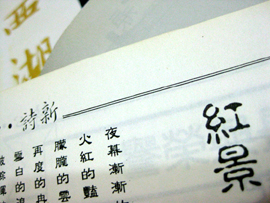 西湖
新詩·
紅景
夜幕漸漸
火紅的豔
朦朧的雲
再度的冉
雪白的浪